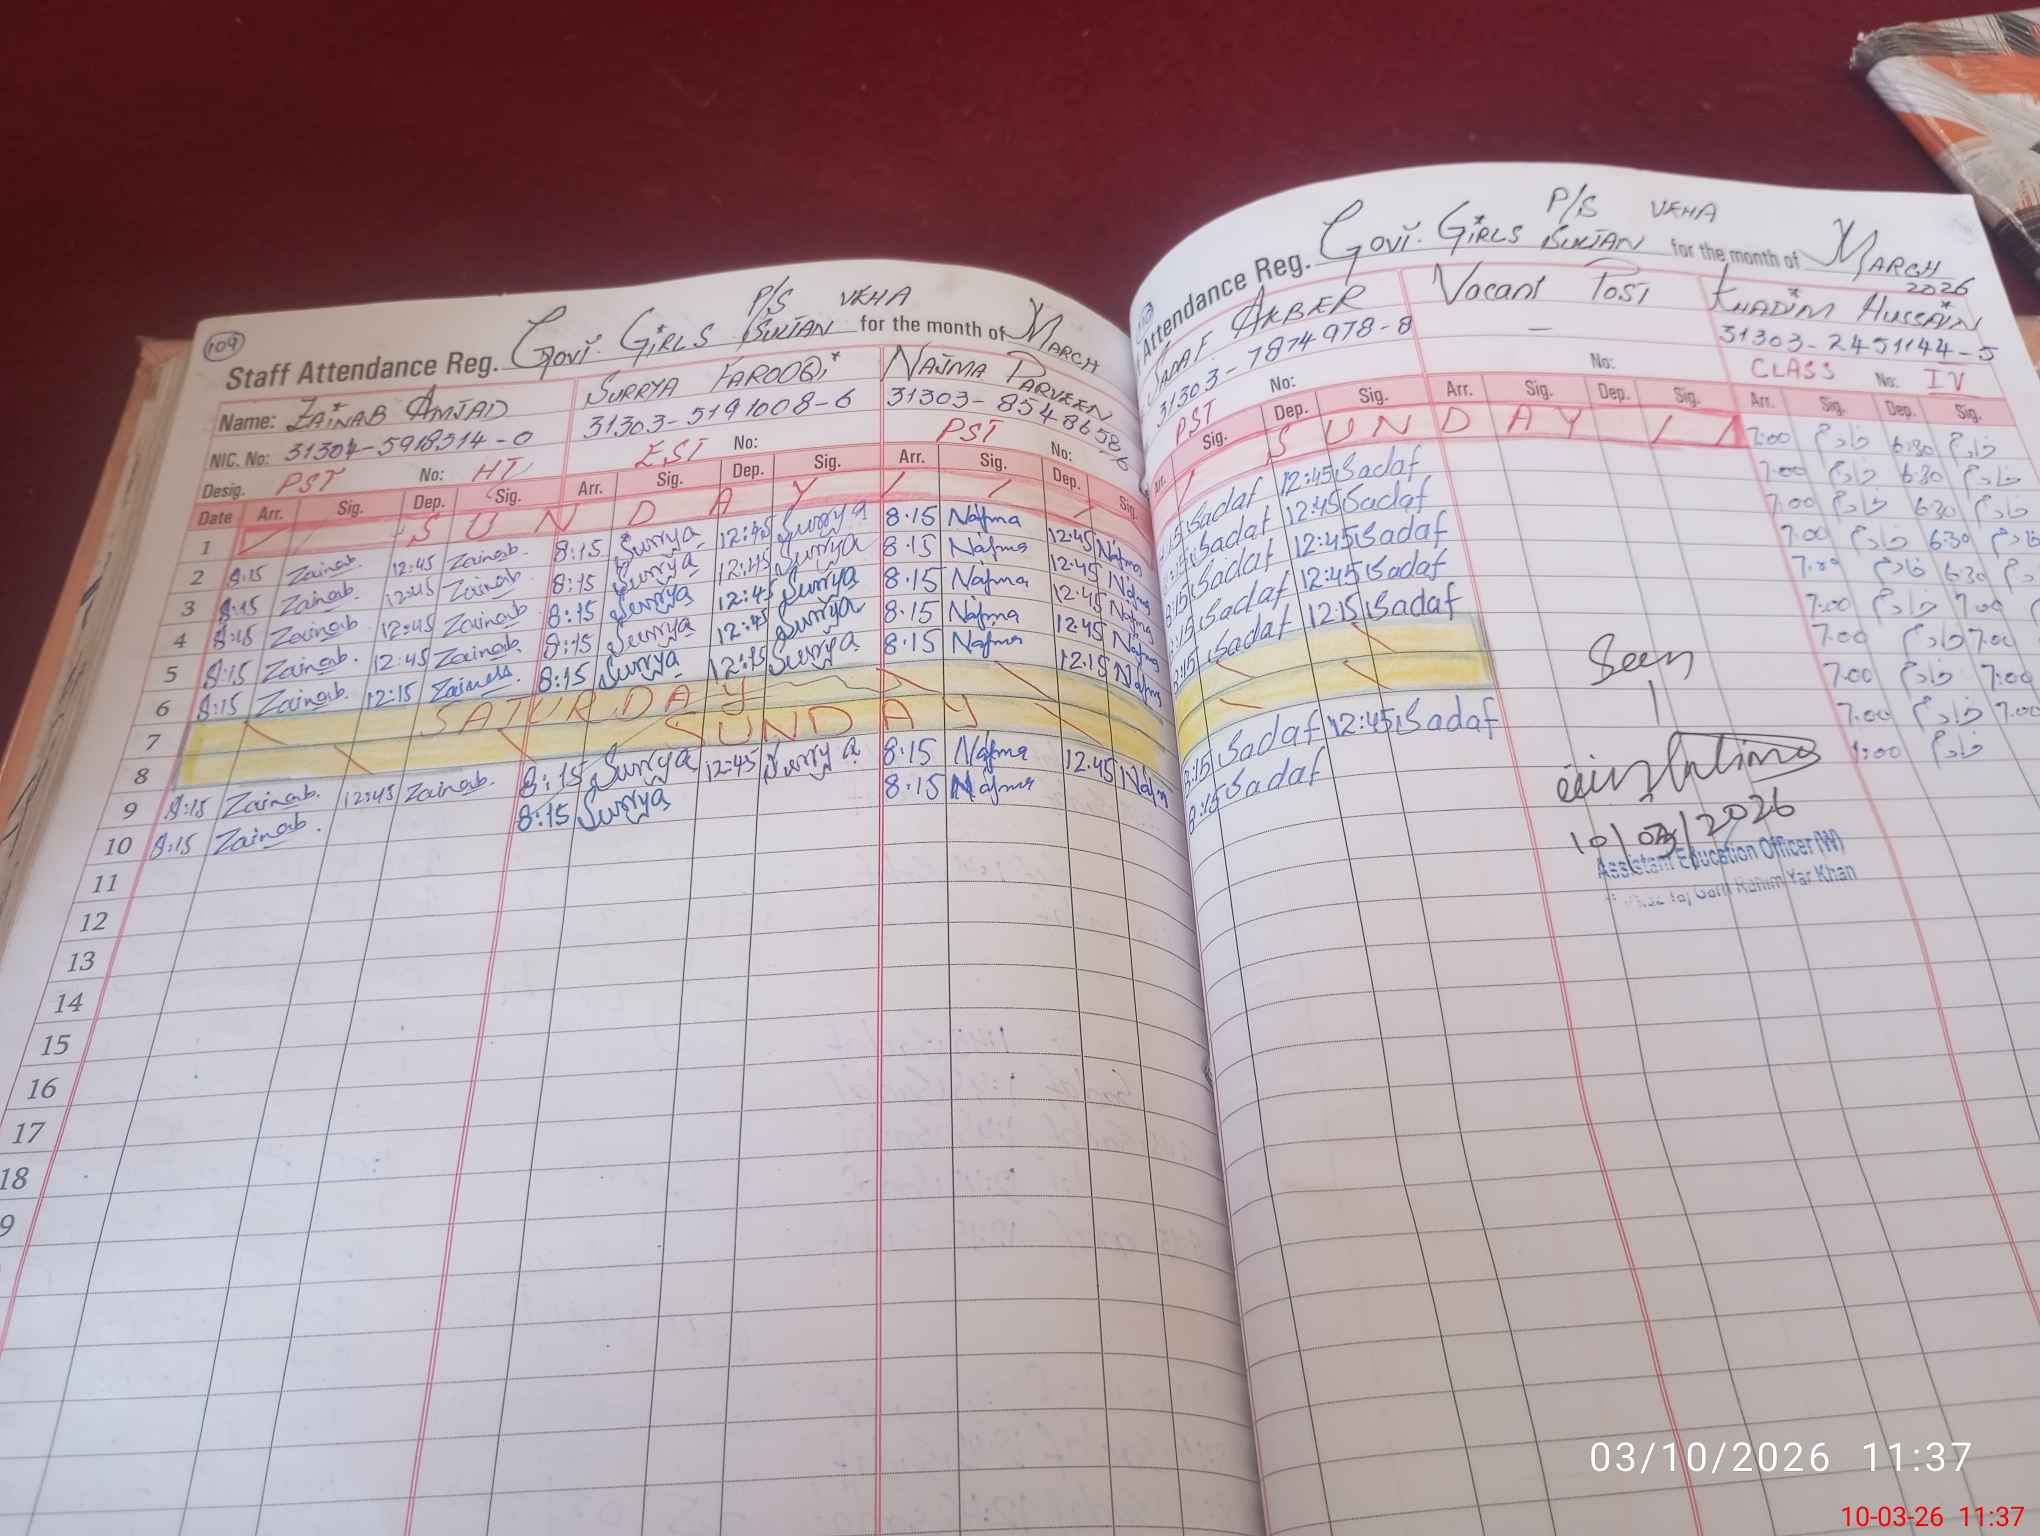 109
P/S VEHA
Staff Attendance Reg. Govt. GiRLS SULTAN for the month of MARCH
Name: ZAiNAB AMJAD SURRYA FAROOQi NAJMA PARVEEN
NIC. No: 31304-5918314-0 31303-5191008-6 31303-8548658-6
Desig. PST No: HT EST No: PST No:
Date Arr. Sig. Dep. Sig. Arr. Sig. Dep. Sig. Arr. Sig. Dep. Sig.
1 S U N D A Y
2 8:15 Zainab. 12:45 Zainab. 8:15 Surrya 12:45 Surrya 8:15 Najma 12:45 Najma
3 8:15 Zainab. 12:45 Zainab. 8:15 Surrya 12:45 Surrya 8:15 Najma 12:45 Najma
4 8:15 Zainab. 12:45 Zainab 8:15 Surrya 12:45 Surrya 8:15 Najma 12:45 Najma
5 8:15 Zainab. 12:45 Zainab. 8:15 Surrya 12:45 Surrya 8:15 Najma 12:45 Najma
6 8:15 Zainab. 12:15 Zainab. 8:15 Surrya 12:15 Surrya 8:15 Najma 12:15 Najma
7 SATURDAY
8 SUNDAY
9 8:15 Zainab. 12:45 Zainab. 8:15 Surrya 12:45 Surrya 8:15 Najma 12:45 Najma
10 8:15 Zainab. 8:15 Surrya 8:15 Najma
11
12
13
14
15
16
17
18
9
P/S VEHA
Attendance Reg. Govt. GiRLS SULTAN for the month of MARCH 2026
SADAF AKBER Vacant Post KHADiM HUSSAiN
31303-7874978-8 — 31303-2451144-5
PST No: No: CLASS No: IV
Arr. Sig. Dep. Sig. Arr. Sig. Dep. Sig. Arr. Sig. Dep. Sig.
S U N D A Y 7:00 خادم 6:30 خادم
8:15 Sadaf 12:45 Sadaf 7:00 خادم 6:30 خادم
8:15 Sadaf 12:45 Sadaf 7:00 خادم 6:30 خادم
8:15 Sadaf 12:45 Sadaf 7:00 خادم 6:30 خادم
8:15 Sadaf 12:45 Sadaf 7:00 خادم 6:30
8:15 Sadaf 12:15 Sadaf 7:00 خادم 7:00
7:00 خادم 7:00
7:00 خادم 7:00
8:15 Sadaf 12:45 Sadaf 7:00 خادم 7:00
8:15 Sadaf 7:00 خادم
Seen
10/03/2026
Assistant Education Officer (W)
Garh Rahim Yar Khan
03/10/2026 11:37
10-03-26 11:37